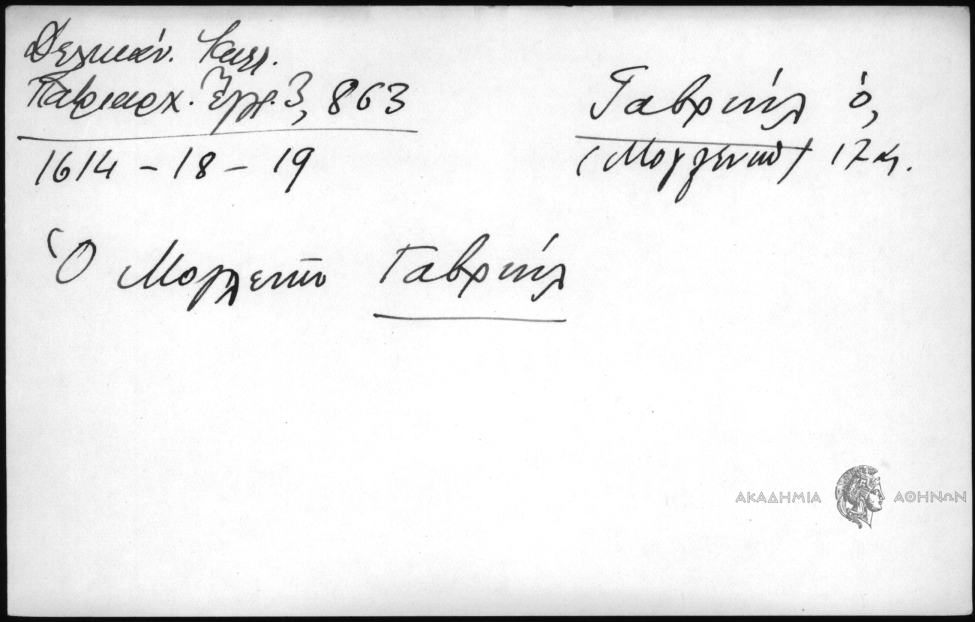 Δελικάν. Καλλ.
Πατριαρχ. Ἔγγρ. 3, 863
1614 – 18 – 19
Γαβριήλ ὁ,
(Μογλενῶν) 17 αι.
Ὁ Μογλενῶν Γαβριήλ
ΑΚΑΔΗΜΙΑ ΑΘΗΝΩΝ